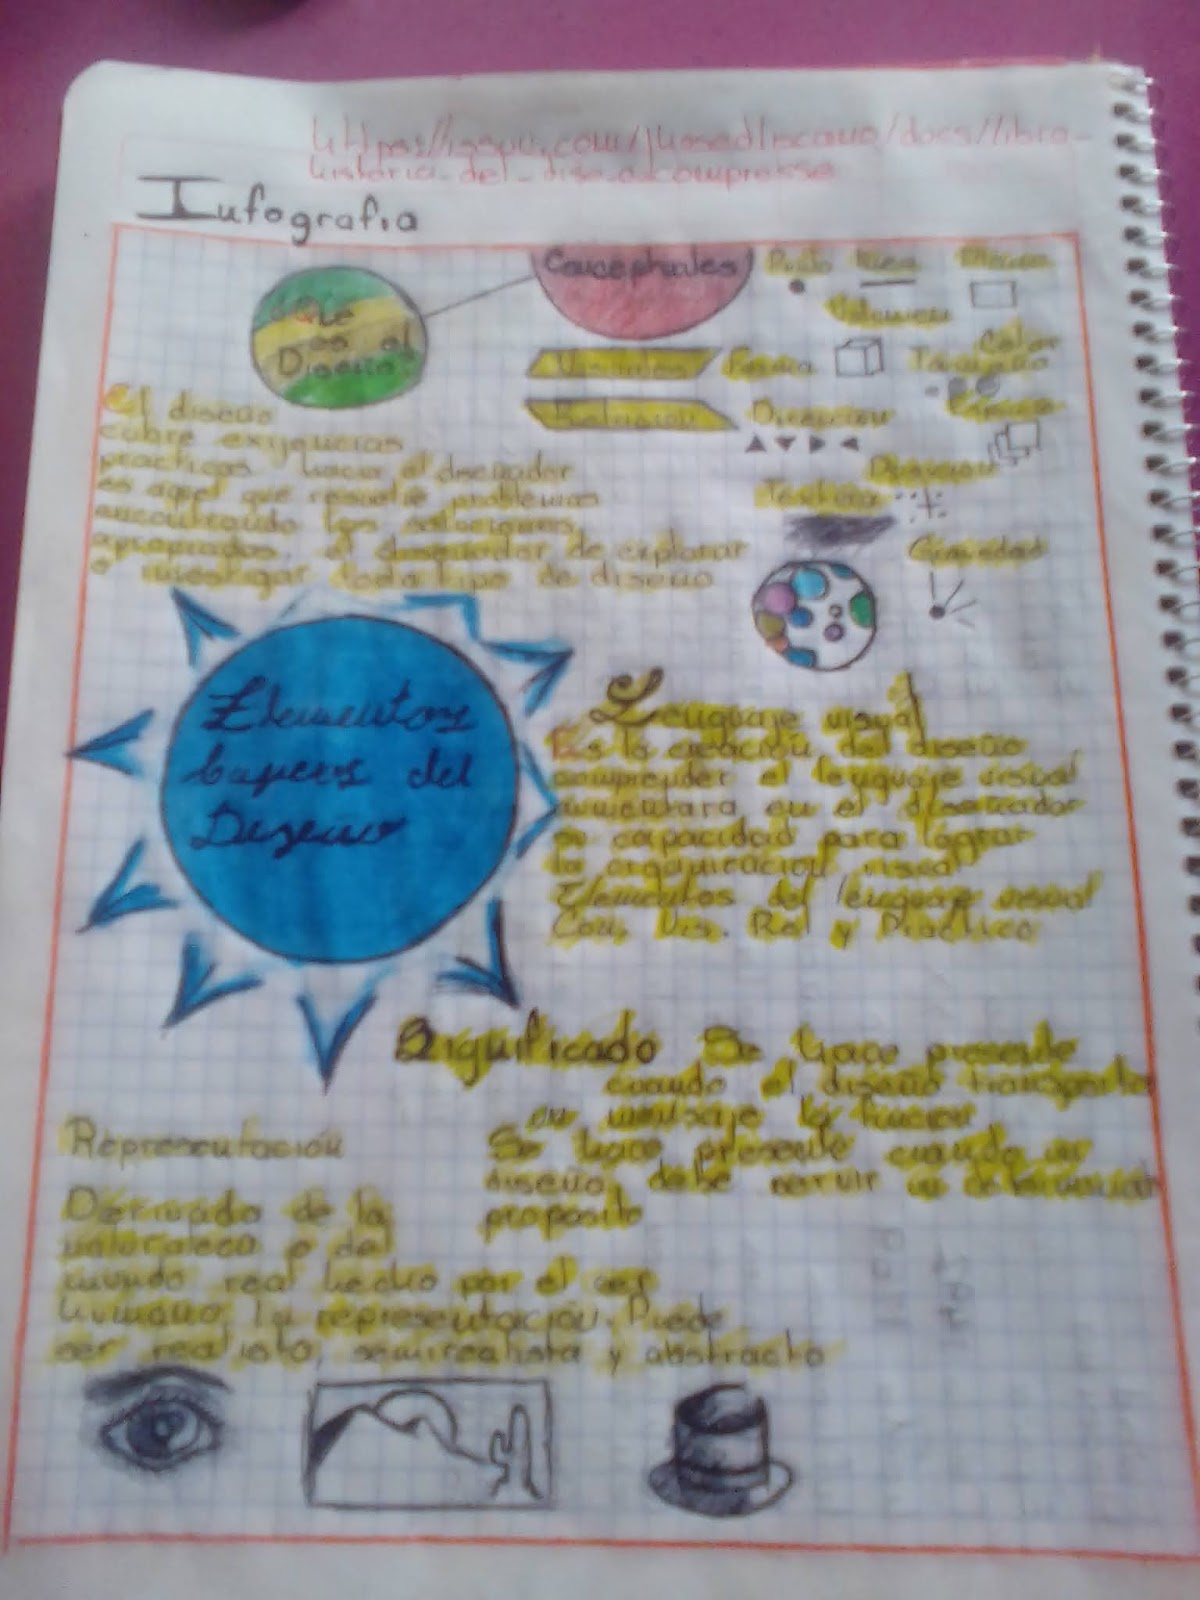 Infografia
Conceptuales
Punto Linea
Volumen
¿Que
es el
Diseño?
Visuales Forma Color
Tamaño
Relacion Direccion Espacio
Posicion
Textura
Gravedad
El diseño
cubre exigencias
practicas, hace el diseñador
es aquel que resuelve problemas
encontrando las soluciones
apropiadas, el diseñador de explorar
o investigar todo tipo de diseño
Elementos
del
Diseño
Lenguaje visual
Es la creación del diseño
comprender el lenguaje visual
aumentara en el diseñador
su capacidad para lograr
la organizacion visual
Elementos del lenguaje visual
Con, Vis. Rel y Practico
Significado Se hace presente
cuando el diseño transporta
un mensaje la funcion
Se hace presente cuando un
diseño, debe servir un
proposito
Representación
Derivado de la
naturaleza o del
mundo real hecho por el ser
humano, la representación. Puede
ser realista, semirealista y abstracto